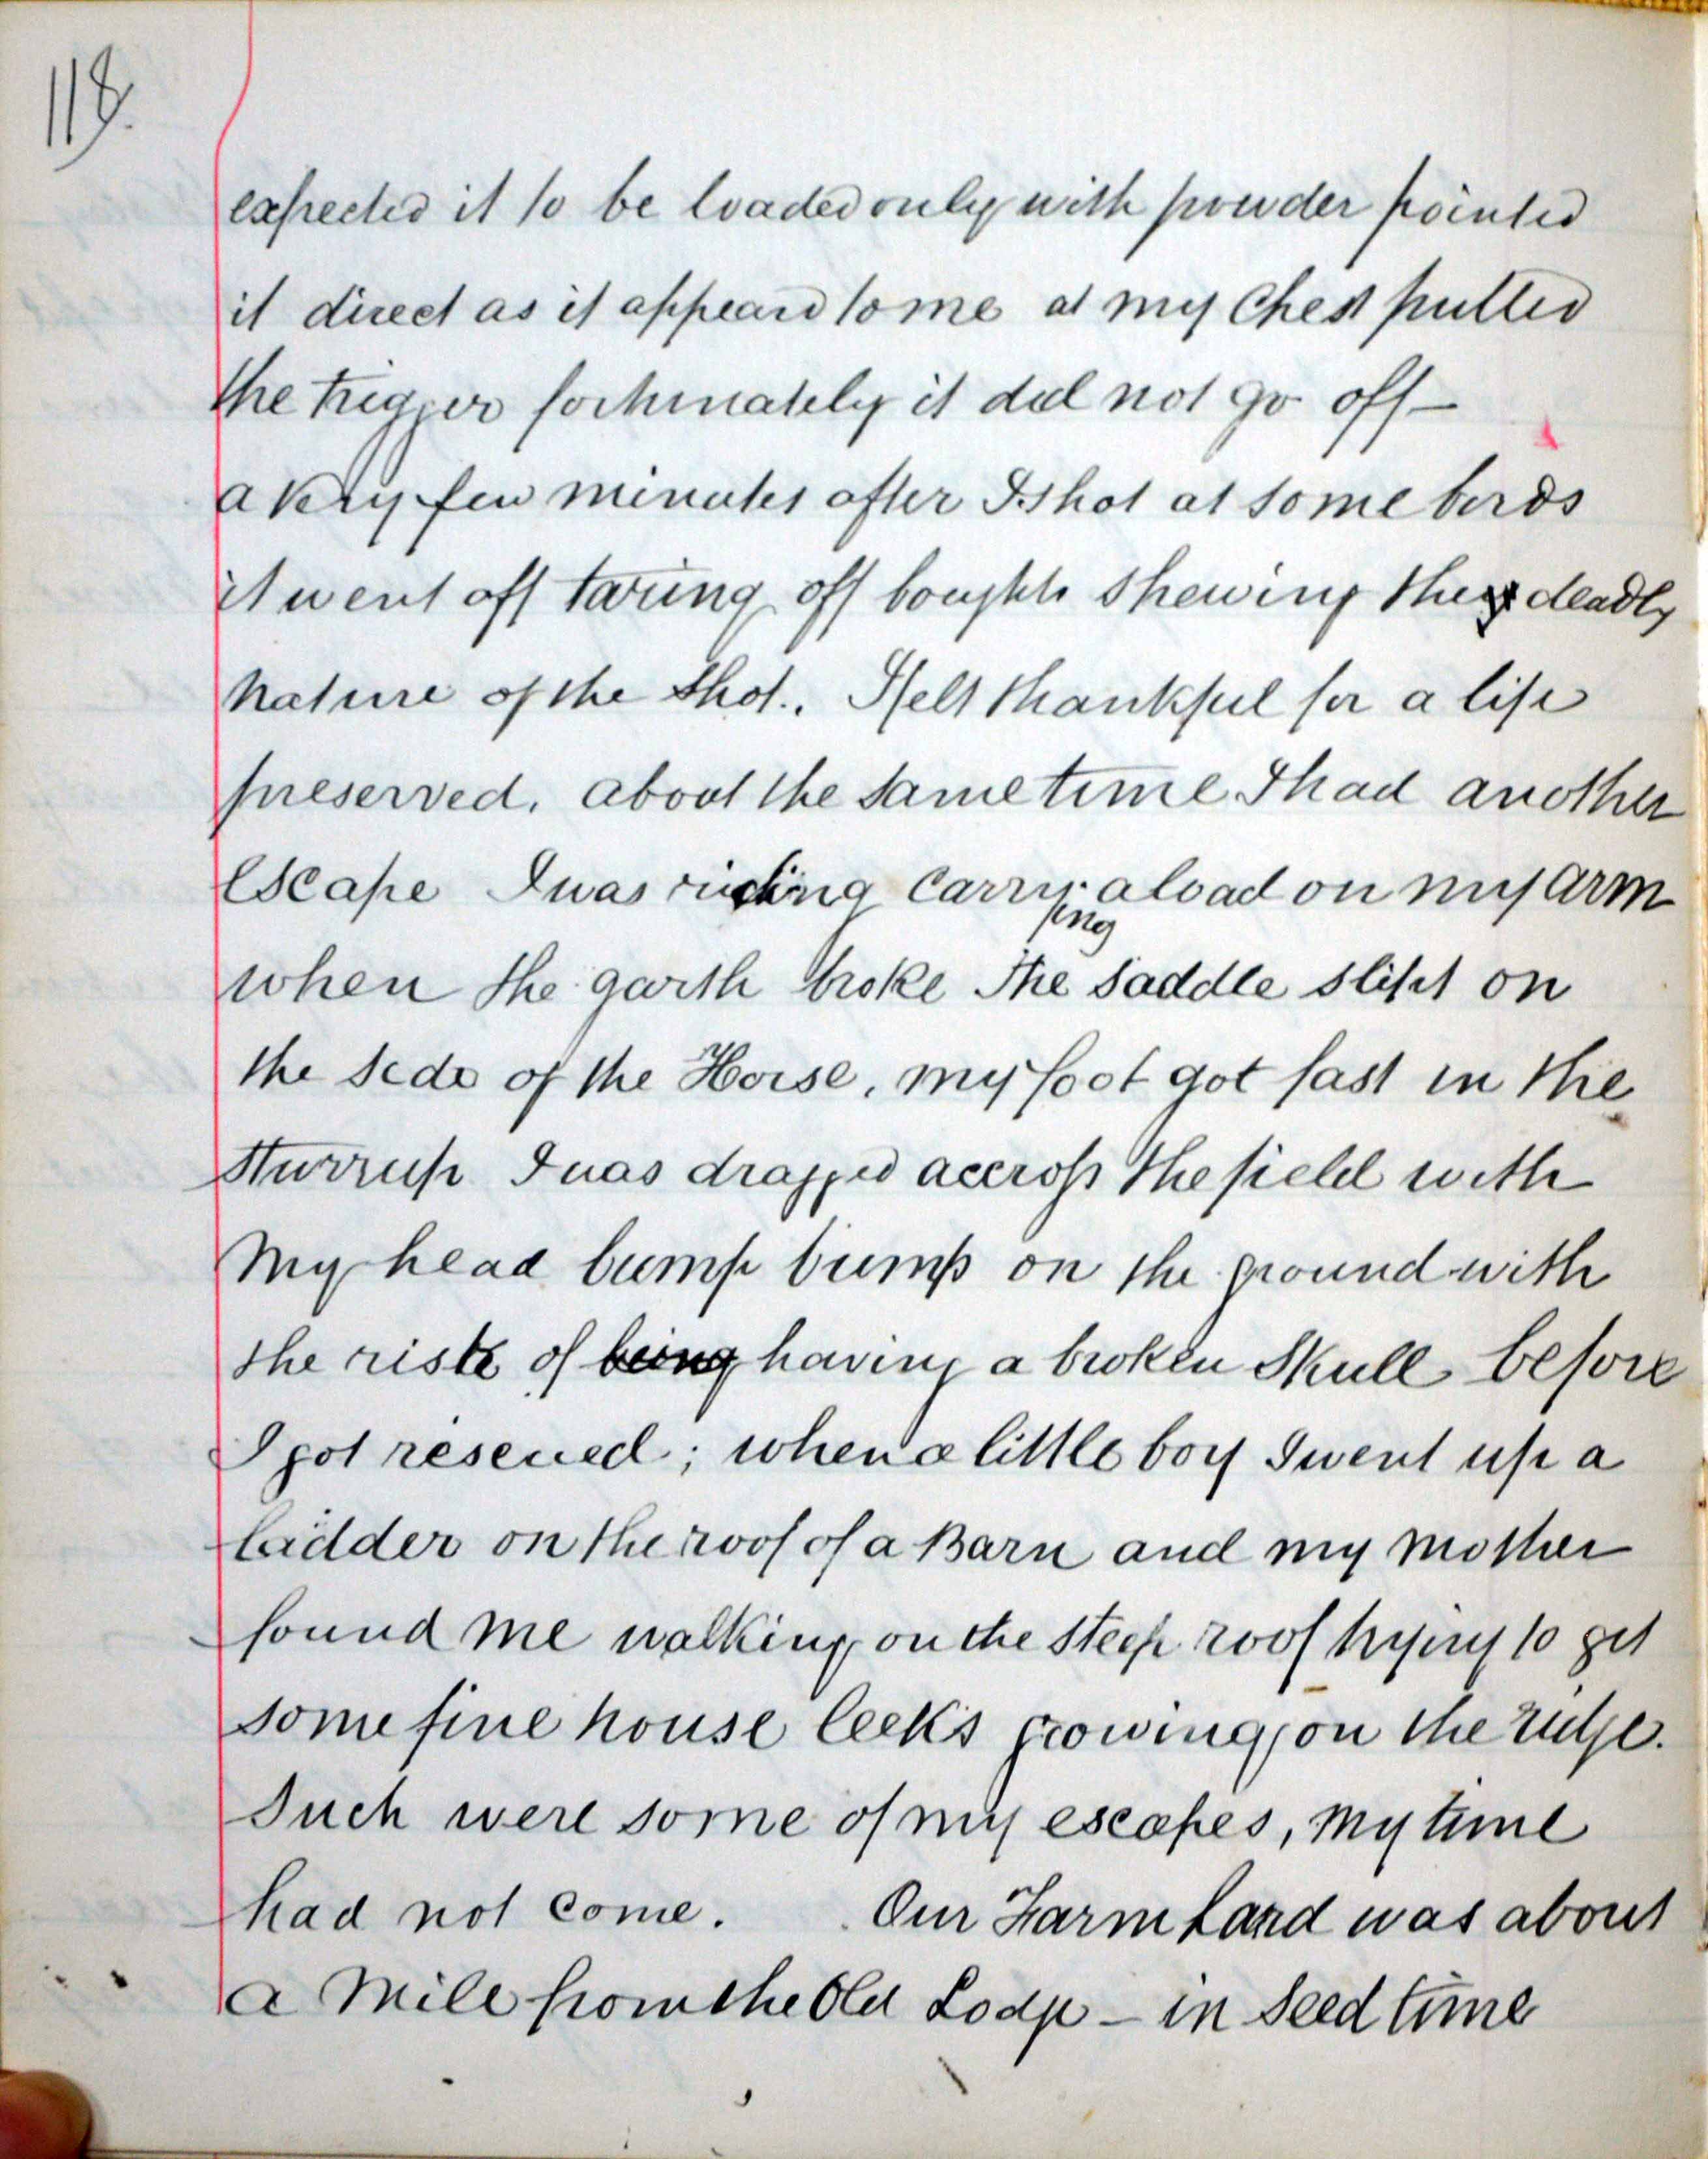 118.
expected it to be loaded only with powder pointed
it direct as it appeard to me at my Chest pulled
the trigger fortunately it did not go off—
a very few minutes after I shot at some birds
it went off taring off boughts shewing the deadly
nature of the shot.. I felt thankful for a life
preserved. about the same time I had another
Escape I was riding Carrying a load on my arm
when the garth broke the saddle slipt on
the side of the Horse, my foot got fast in the
Sturrup I was dragged accross the field with
my head bump bump on the ground with
the riske of being having a broken Skull before
I got rescued; when a little boy I went up a
ladder on the roof of a Barn and my mother
found me walking on the steep roof trying to get
some fine house leeks growing on the ridge.
Such were some of my escapes, my time
had not come. Our Farm Land was about
a mile from the Old Lodge – in Seed time